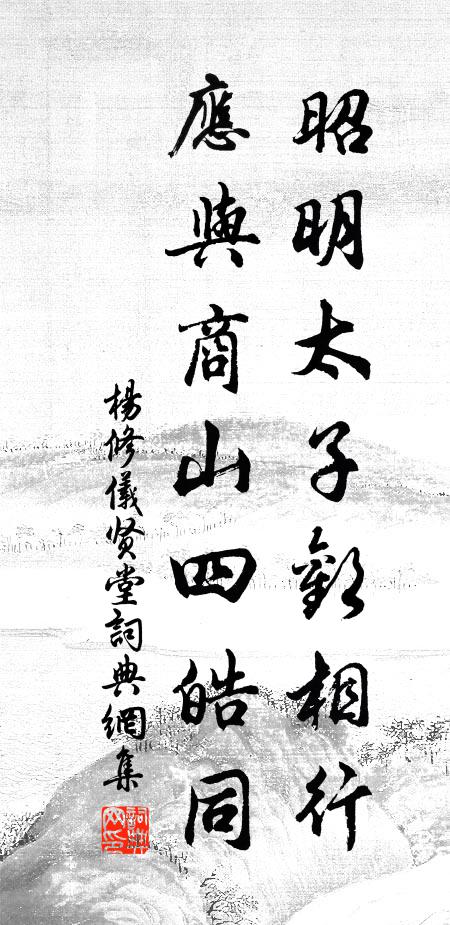 昭明太子相行
應與商山四皓同
楊修儀贤堂詞典網集